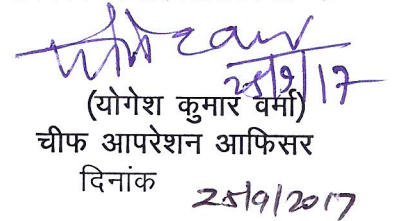 25/9/17
(योगेश कुमार वर्मा)
चीफ आपरेशन आफिसर
दिनांक 25/9/2017